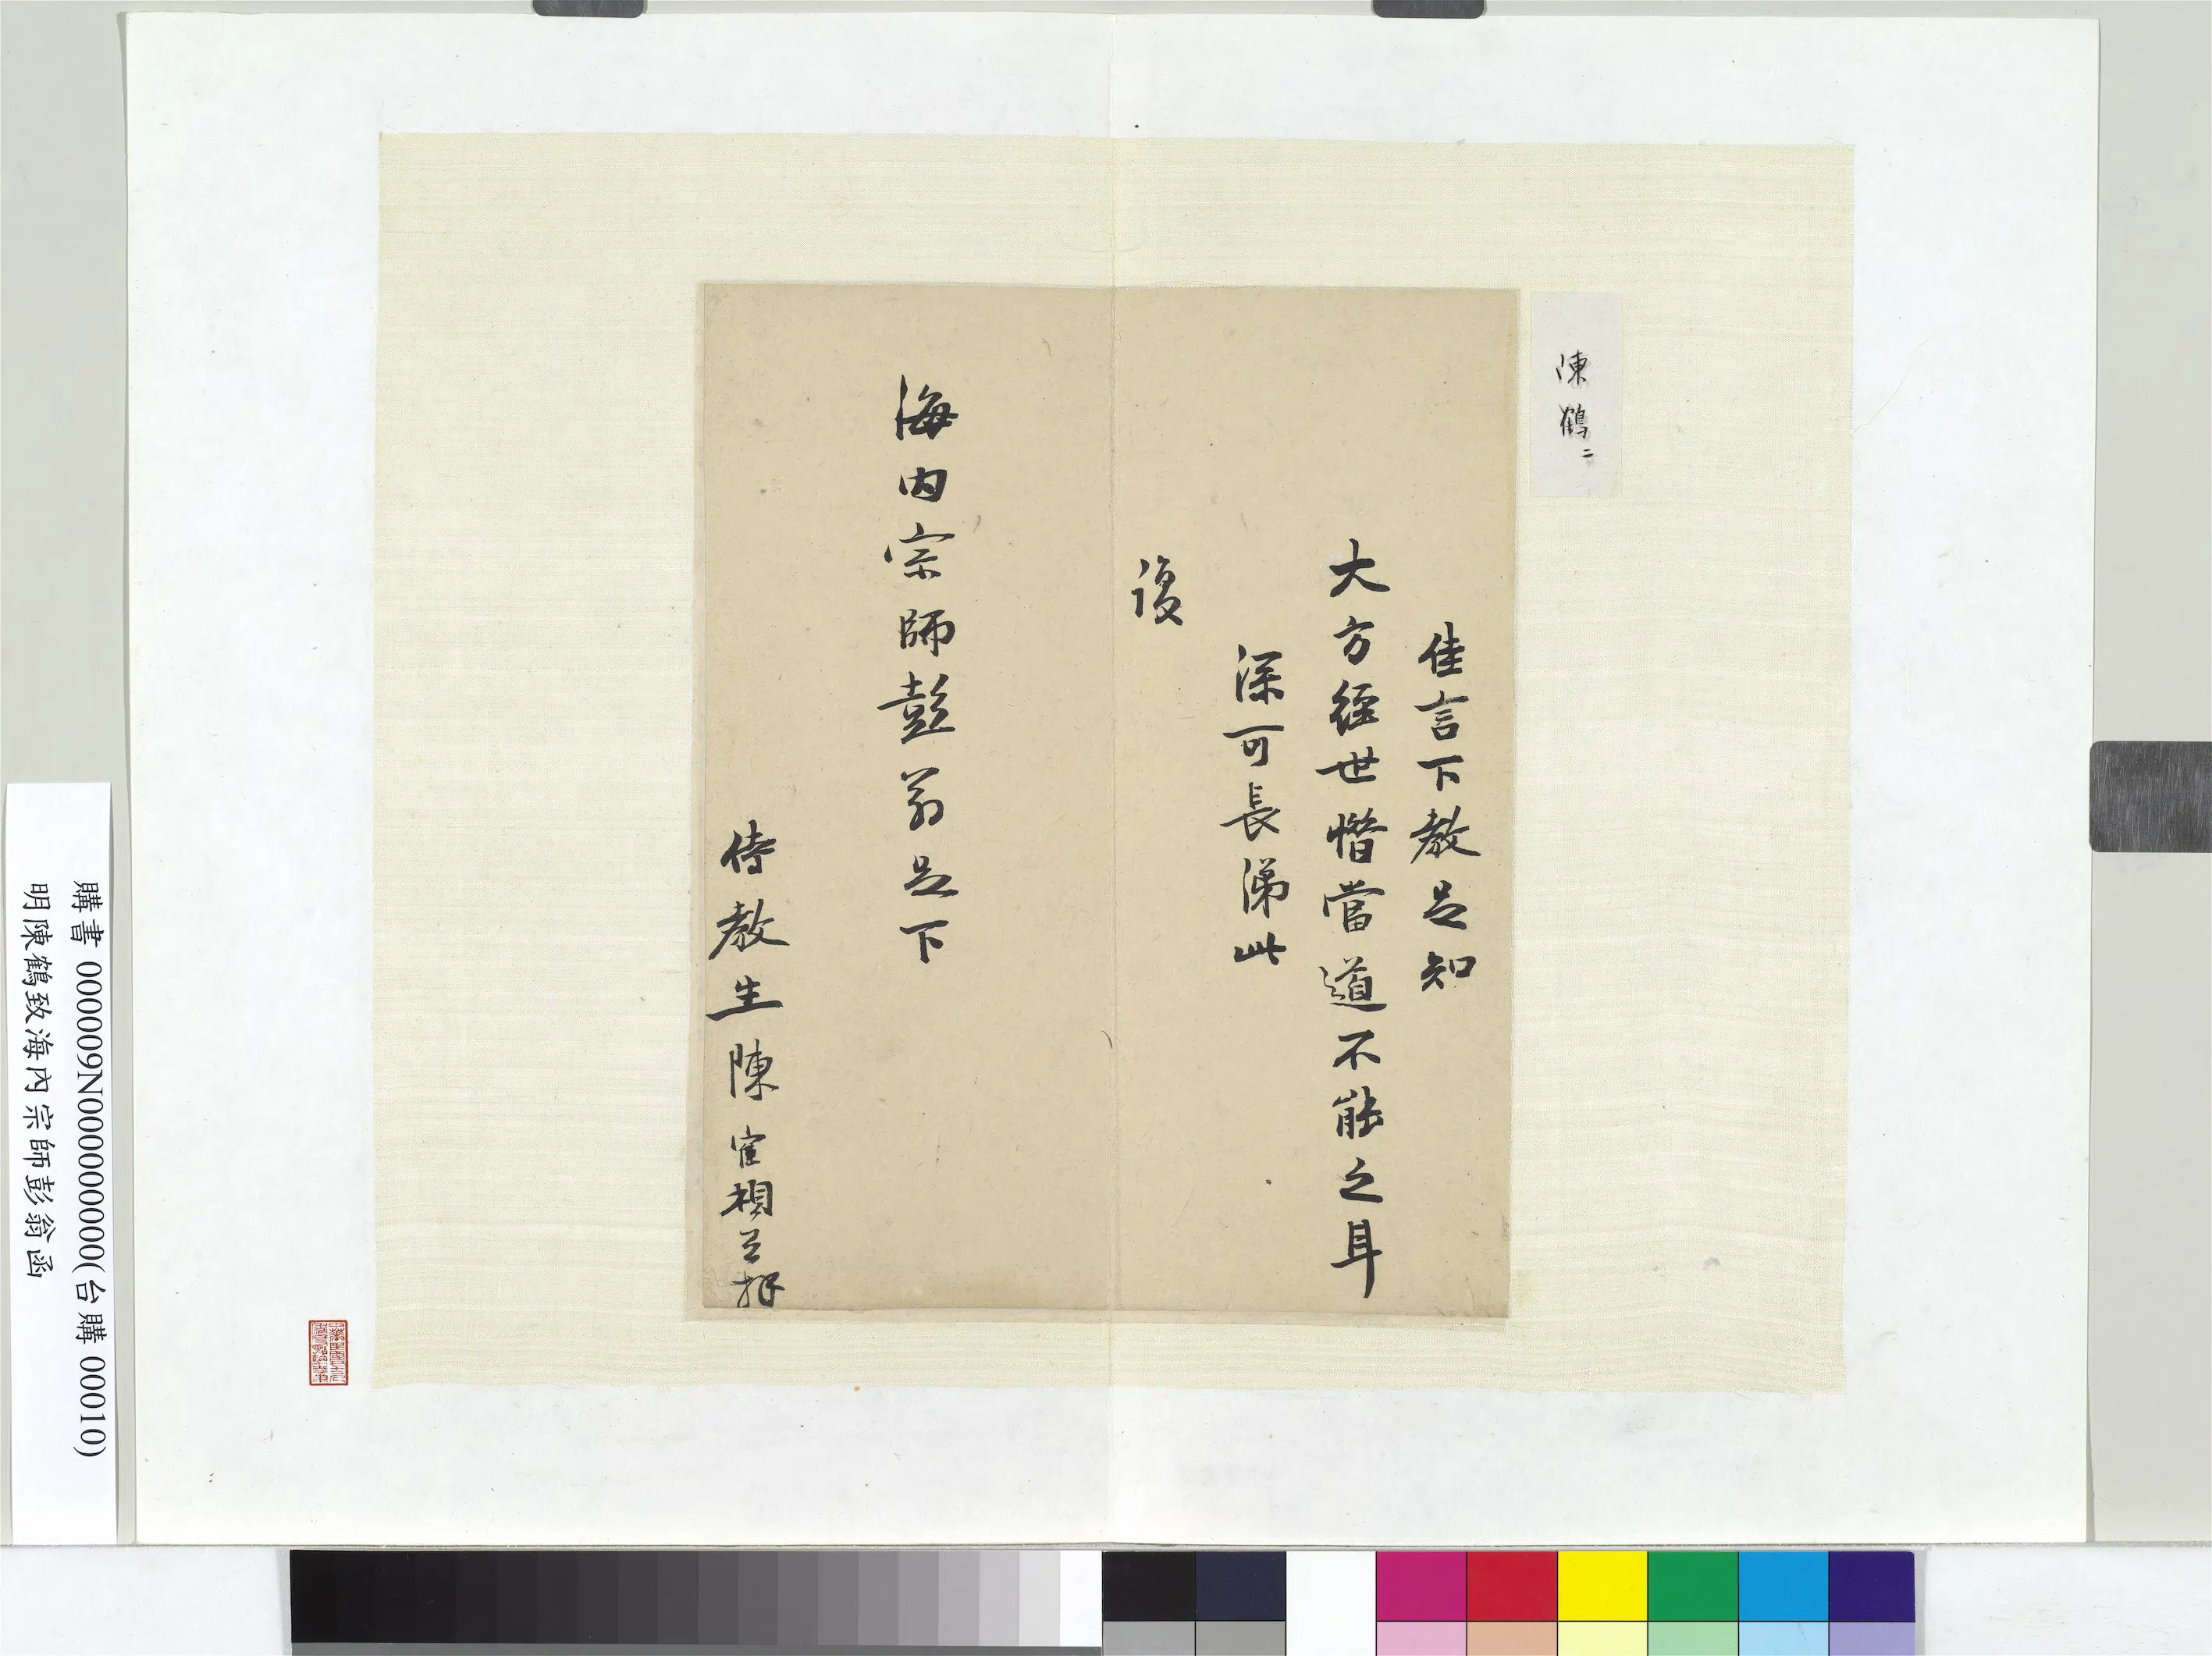 陳鶴二
佳言下教足知
大方經世惜當道不能之耳
深可長涕此
復
海內宗師彭翁足下
侍教生陳寉頓首拜
購書 000009N000000000(台購 00010)
明陳鶴致海內宗師彭翁函